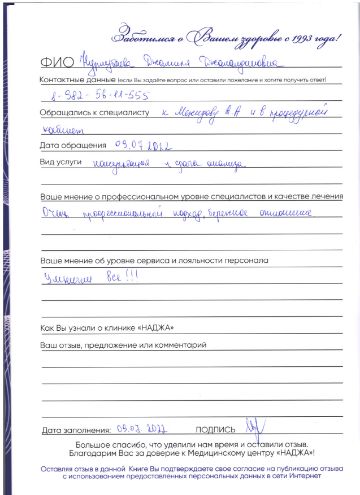 Заботимся о Вашем здоровье с 1993 года!
ФИО Джамиля
Контактные данные (если Вы задаёте вопрос или оставили пожелание и хотите получить ответ)
8-982-56-11-555
Обращались к специалисту к А.А и в процедурной
кабинет
Дата обращения 09.07.2022
Вид услуги консультация и сдача анализа
Ваше мнение о профессиональном уровне специалистов и качестве лечения
Очень профессиональный подход, бережное отношение
Ваше мнение об уровне сервиса и лояльности персонала
Умнички все!!!
Как Вы узнали о клинике «НАДЖА»
Ваш отзыв, предложение или комментарий
Дата заполнения: 09.07.2022 ПОДПИСЬ
Большое спасибо, что уделили нам время и оставили отзыв.
Благодарим Вас за доверие к Медицинскому центру «НАДЖА»!
Оставляя отзыв в данной Книге Вы подтверждаете свое согласие на публикацию отзыва
с использованием предоставленных персональных данных в сети Интернет